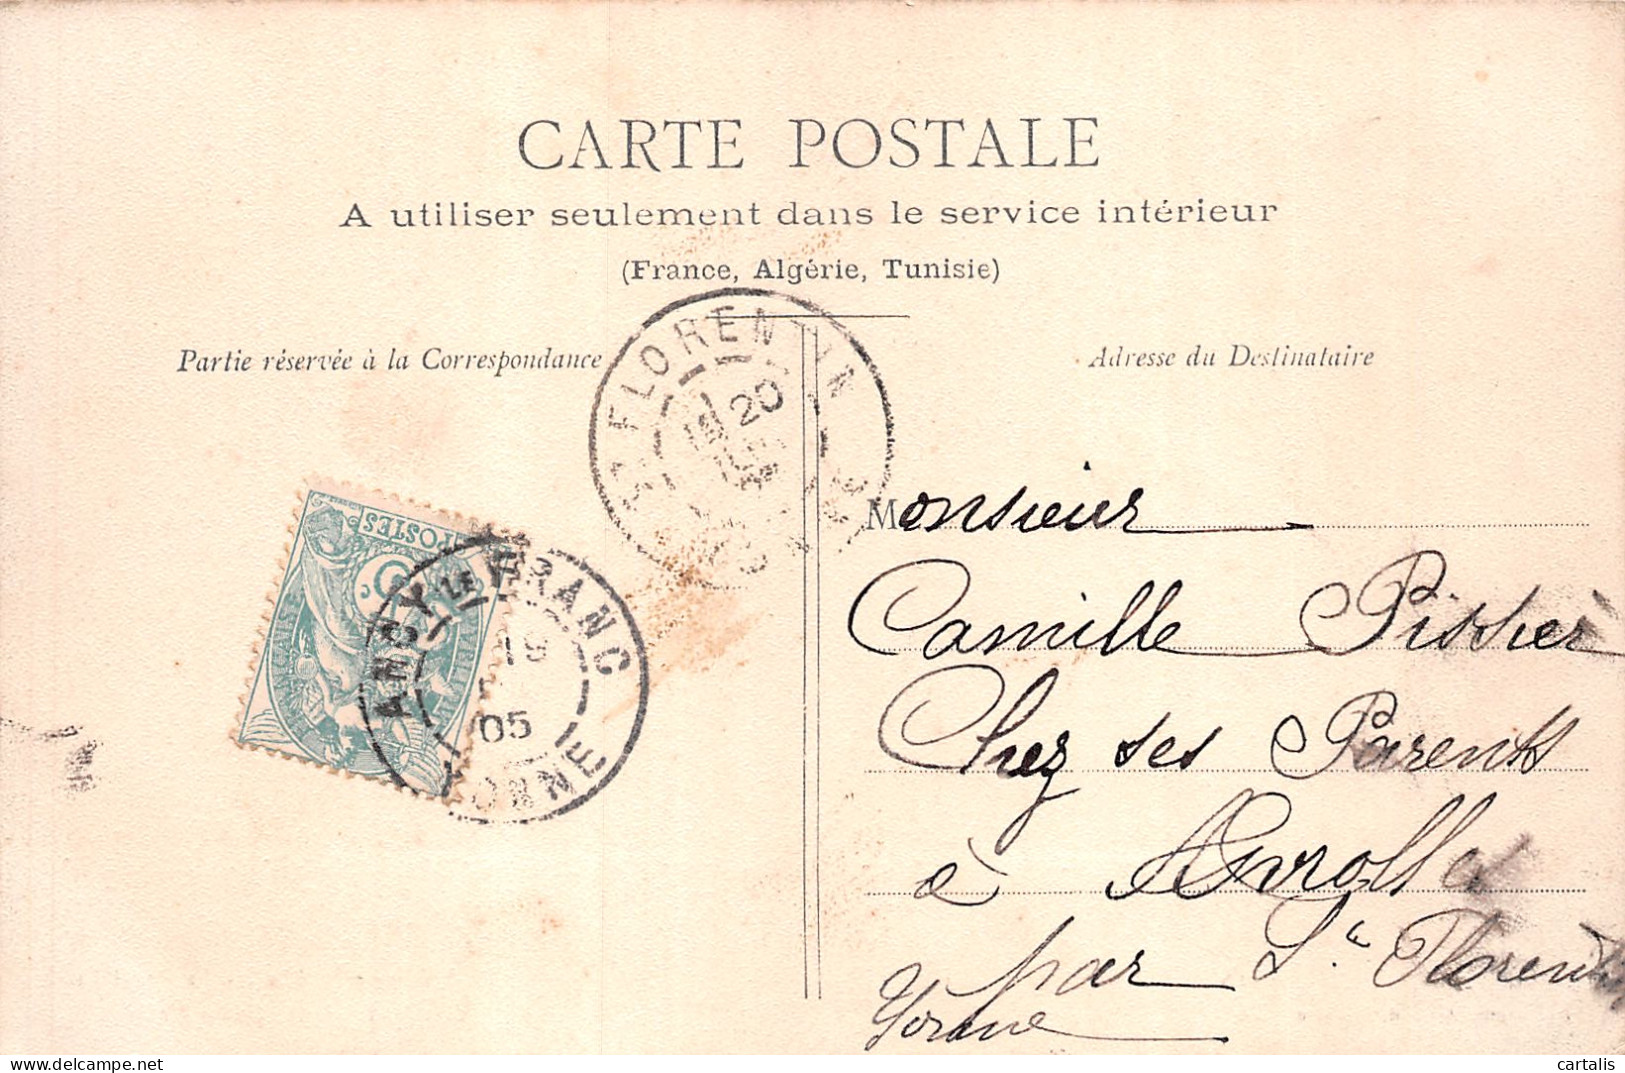 CARTE POSTALE
A utiliser seulement dans le service intérieur
(France, Algérie, Tunisie)
Partie réservée à la Correspondance
Adresse du Destinataire
ST FLORENTIN
20
POSTES
ANCY LE FRANC
19
05
YONNE
Monsieur
Camille Pissier
Chez ses Parents
à Avrolles
par St Florentin
Yonne
cartalis